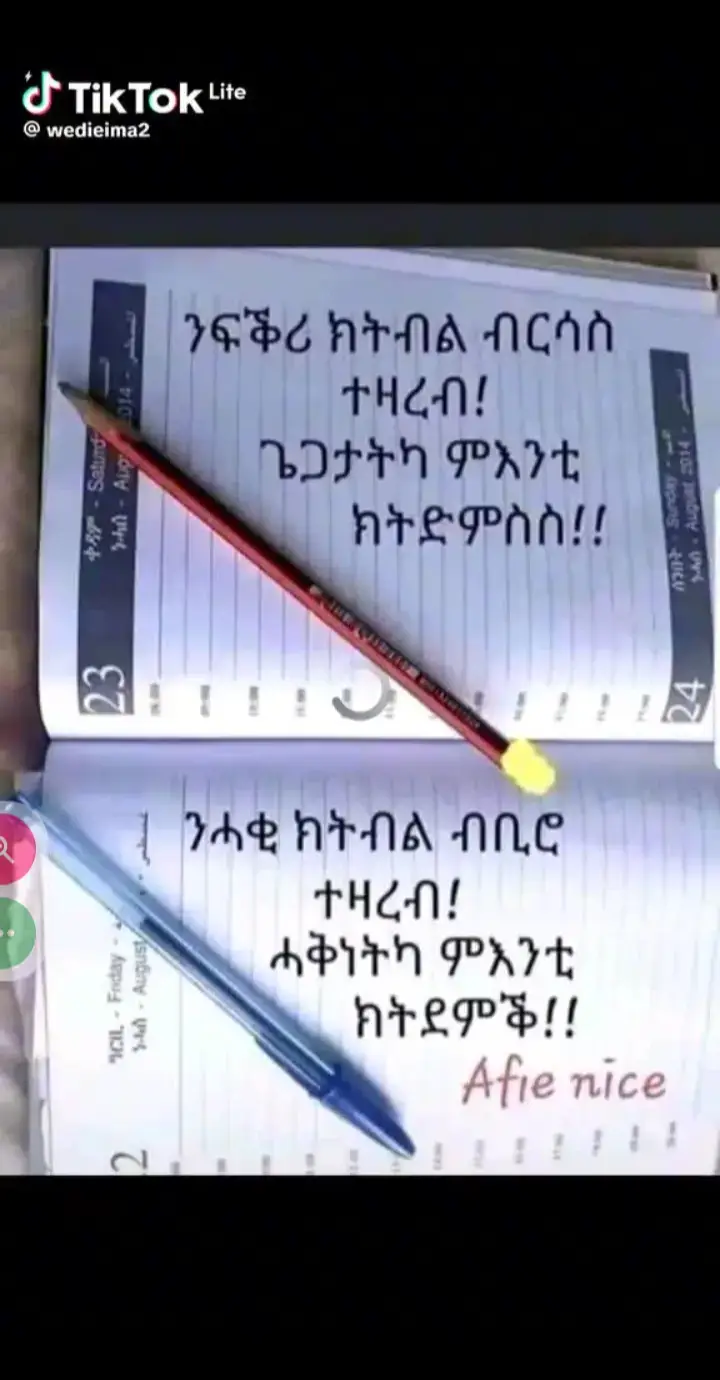 TikTok Lite
@ wedieima2
ንፍቕሪ ክትብል ብርሳስ
ተዛረብ!
ጌጋታትካ ምእንቲ
ክትድምስስ!!
ቀዳም - Saturd
ነሓሰ - Aug 2014 -
ሰንበት - Sunday -
ነሓሰ - August 2014 -
23
24
ንሓቂ ክትብል ብቢሮ
ተዛረብ!
ሓቅነትካ ምእንቲ
ክትደምቕ!!
ዓርቢ - Friday -
ነሓሰ - August
2
Afie nice